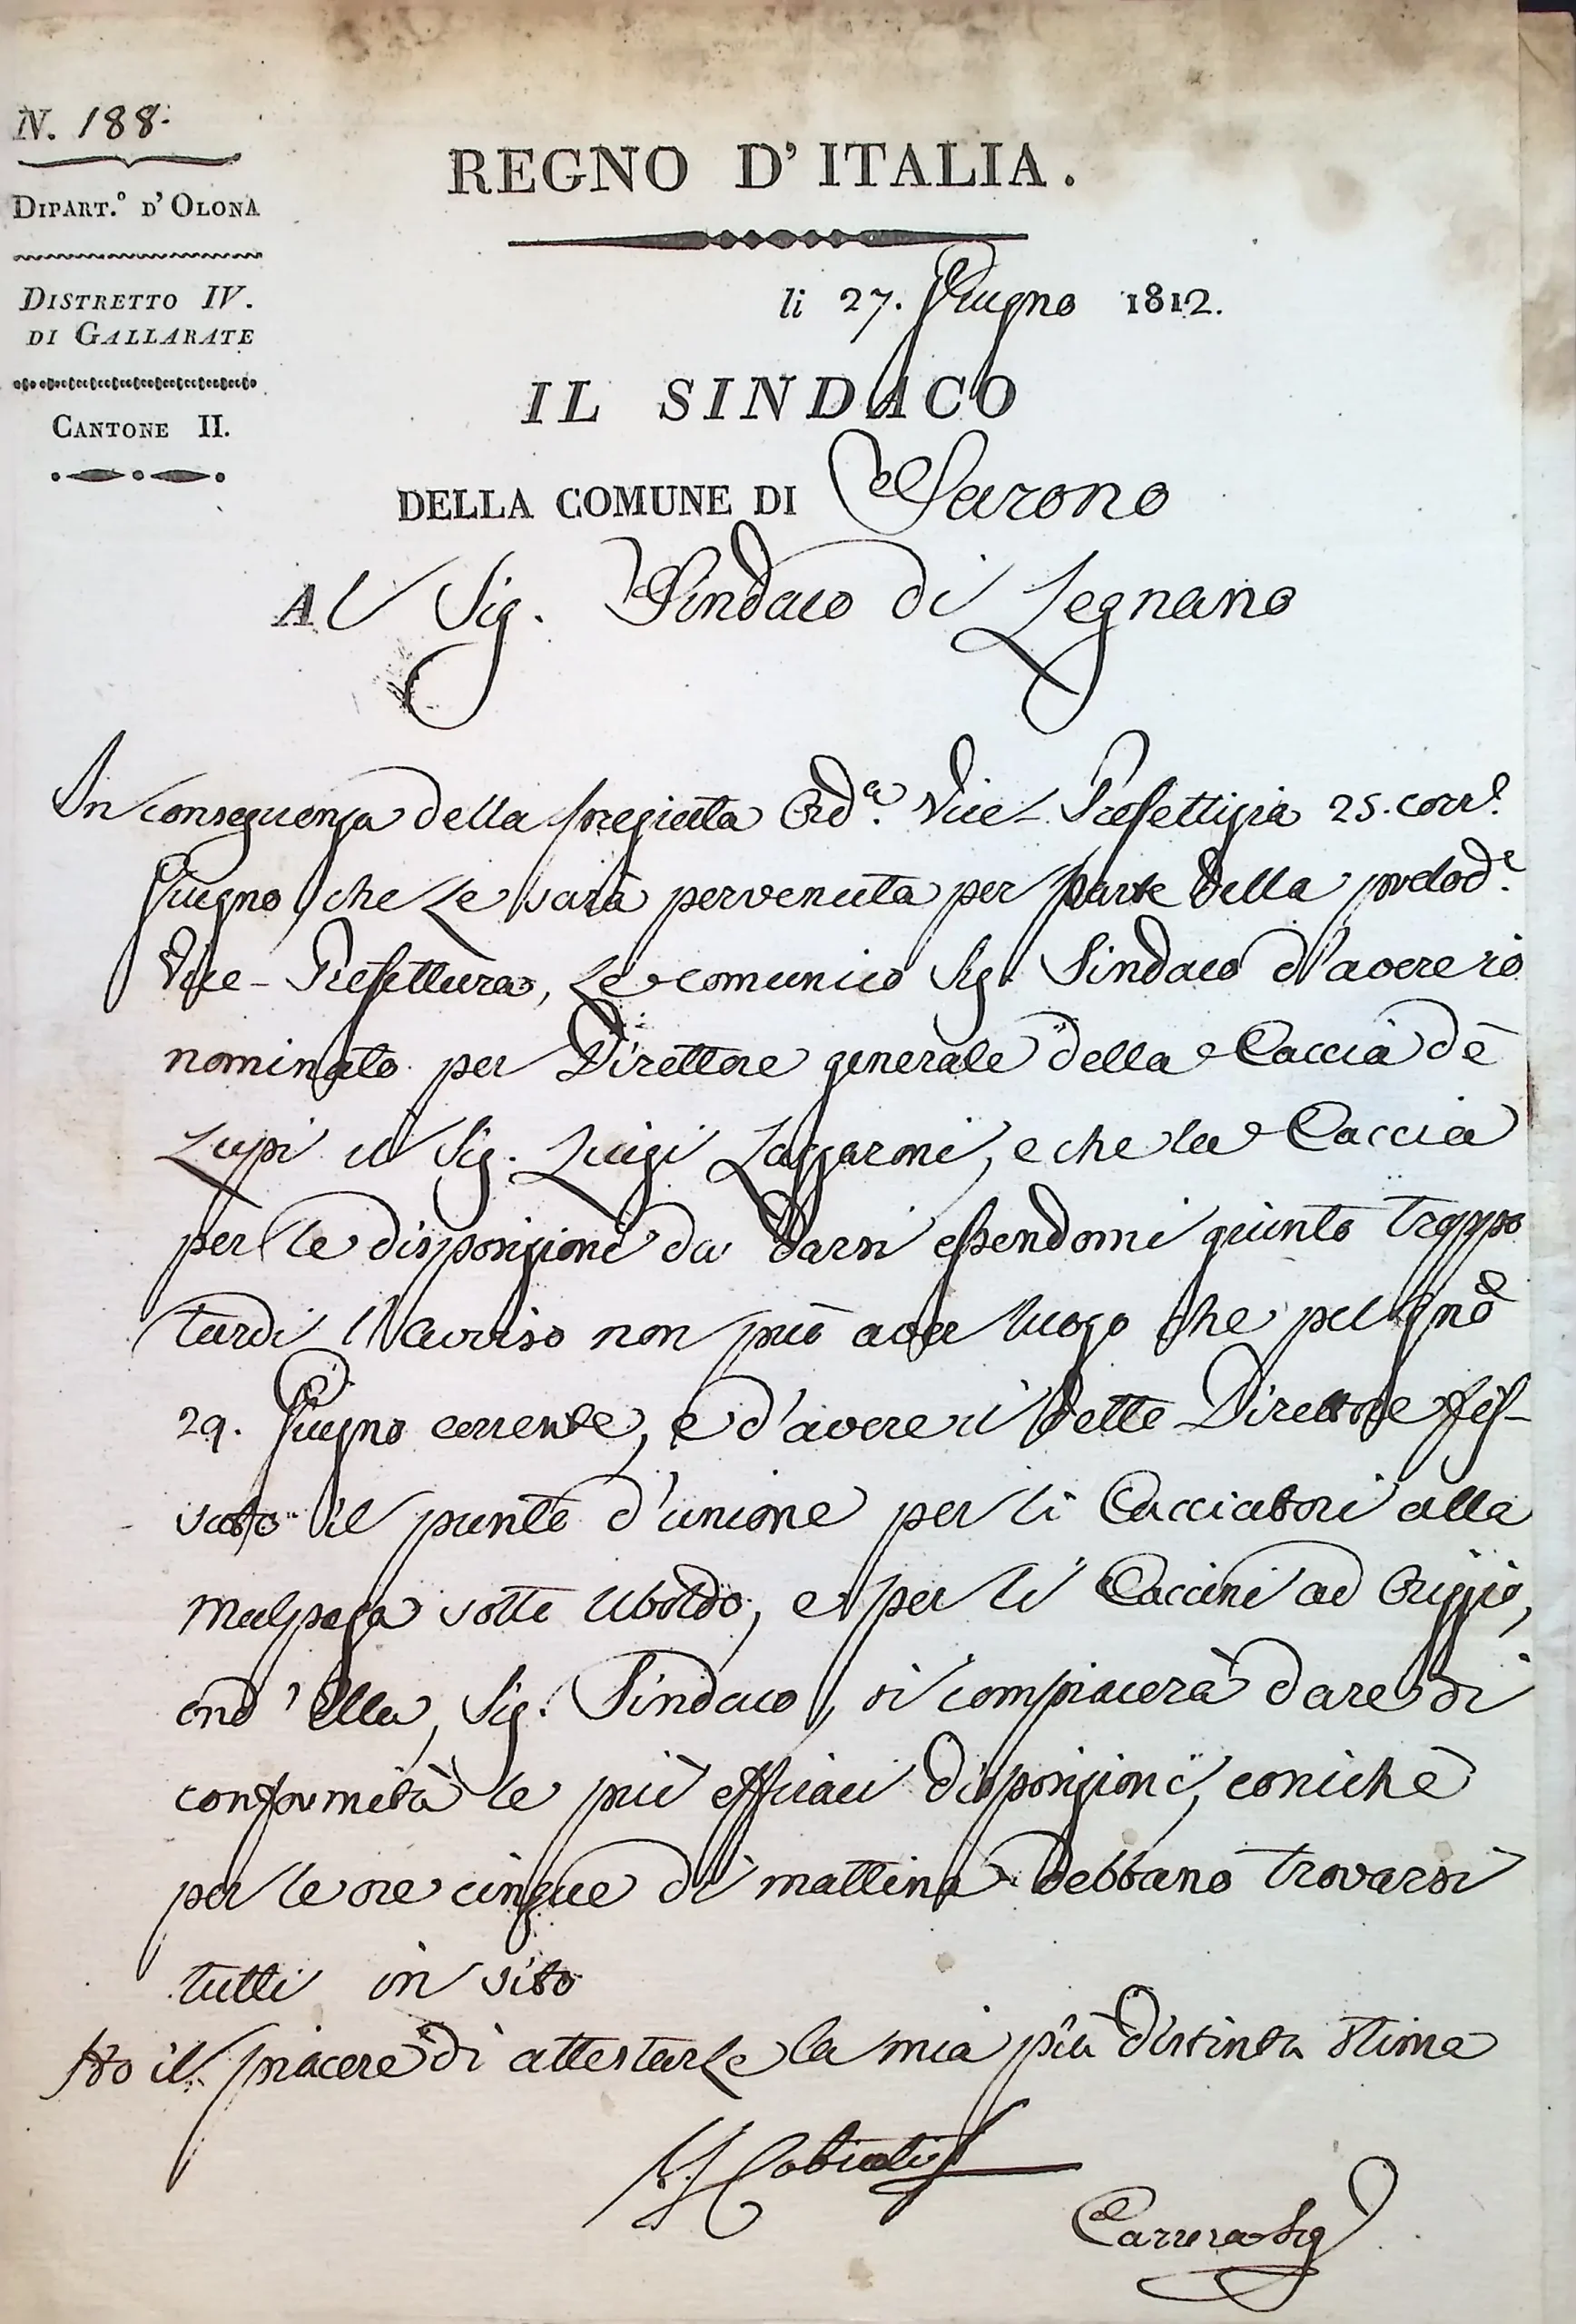 N. 188.
DIPART.º D'OLONA
DISTRETTO IV.
DI GALLARATE
CANTONE II.
REGNO D'ITALIA.
li 27. Giugno 1812.
IL SINDACO
DELLA COMUNE DI Sarono
Al Sig. Sindaco di Legnano
In conseguenza della pregiata Ord.ª Vice-Prefettizia 25. corr.e
Giugno, che Le sarà pervenuta per parte della prelod.ª
Vice-Prefettura, Le comunico Sig. Sindaco d'avere io
nominato per Direttore generale della Caccia dè
Lupi il Sig. Luigi Lazzaroni, e che la Caccia
per le disposizioni da darsi essendomi giunto troppo
tardi l'avviso non può aver luogo che pel gno
29. Giugno corrente, e d'avere il detto Direttore fis-
sato il punto d'unione per li Cacciatori alla
Malpaga sotto Uboldo, e per li Caccini ad Origgio,
ond'Ella, Sig. Sindaco, si compiacerà dare di
conformità le più efficaci disposizioni, cosichè
per le ore cinque di mattina debbano trovarsi
tutti in sito
Ho il piacere di attestarLe la mia più distinta stima
Cobiati
Carrera Sig